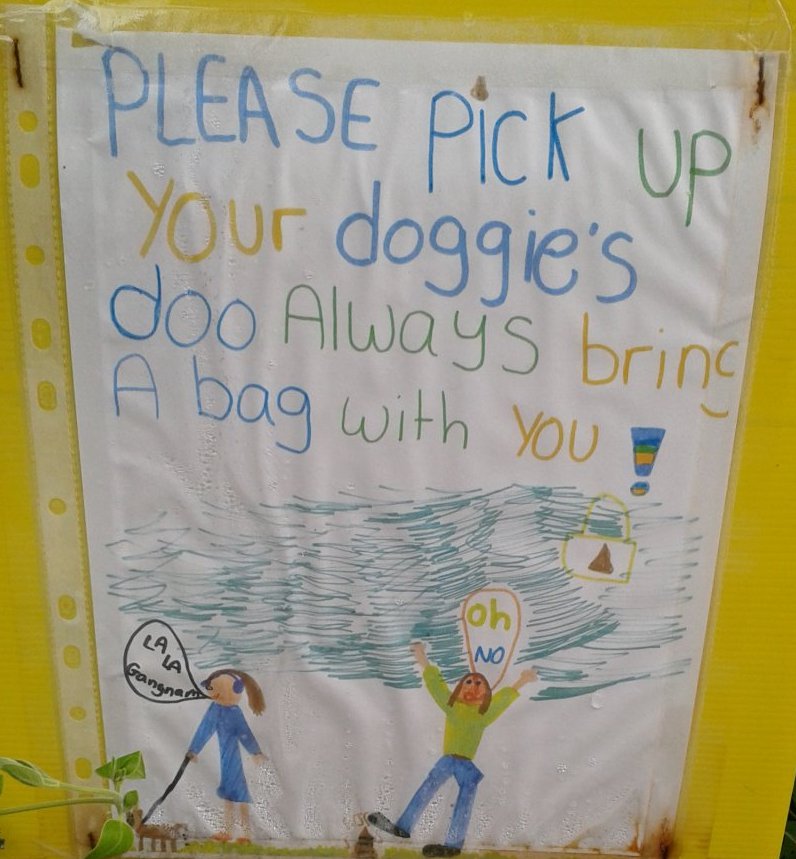 PLEASE PICK UP
Your doggie's
doo Always bring
A bag with you!
oh
NO
LA
LA
Gangnam